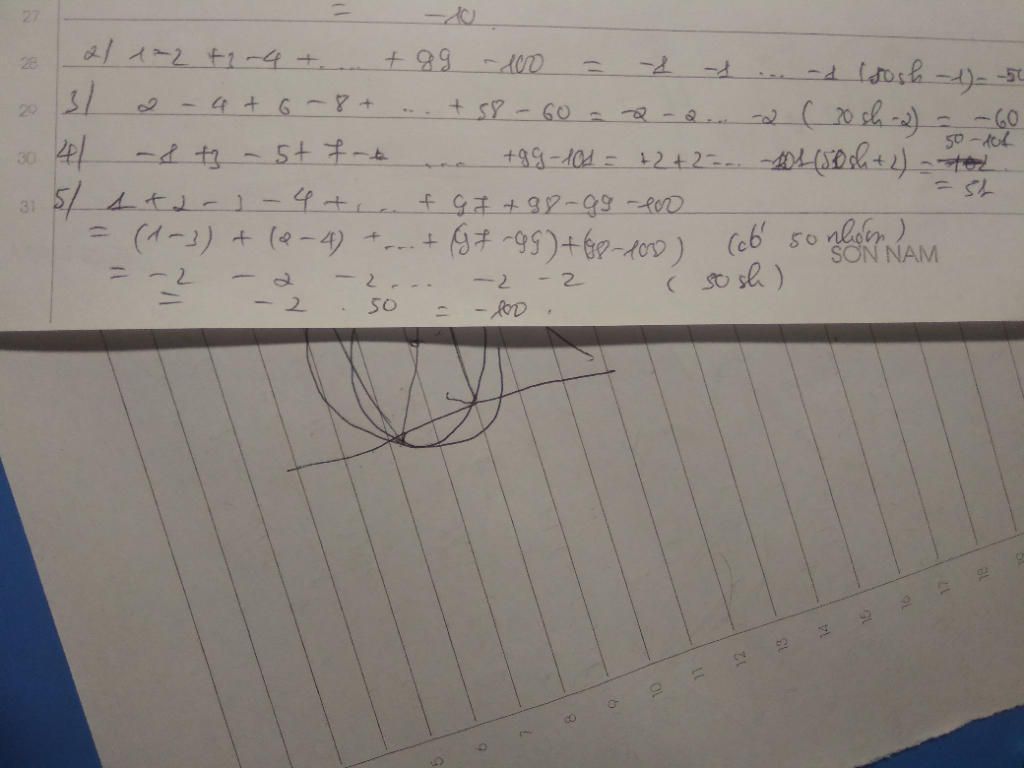 27 = -10
28 2/ 1-2+3-4+.... + 99 -100 = -1 -1 ... -1 (50sh -1) = -50
29 3/ 2 - 4 + 6 - 8 + ... + 58 - 60 = -2 - 2 ... -2 ( sh -2) = -60
30 4/ -1 +3 - 5 + 7 - ... +99-101 = +2+2 ... -101 (50sh +2) = 50 - 101
= 51
31 5/ 1 + 2 - 3 - 4 + ... + 97 + 98 - 99 - 100
= (1-3) + (2-4) + ... + (97-99) + (98-100) (có 50 nhóm)
SON NAM
= -2 - 2 - 2 ... - 2 - 2 ( 50 sh )
= - 2 . 50 = -100 .
5 6 7 8 9 10 11 12 13 14 15 16 17 18 19